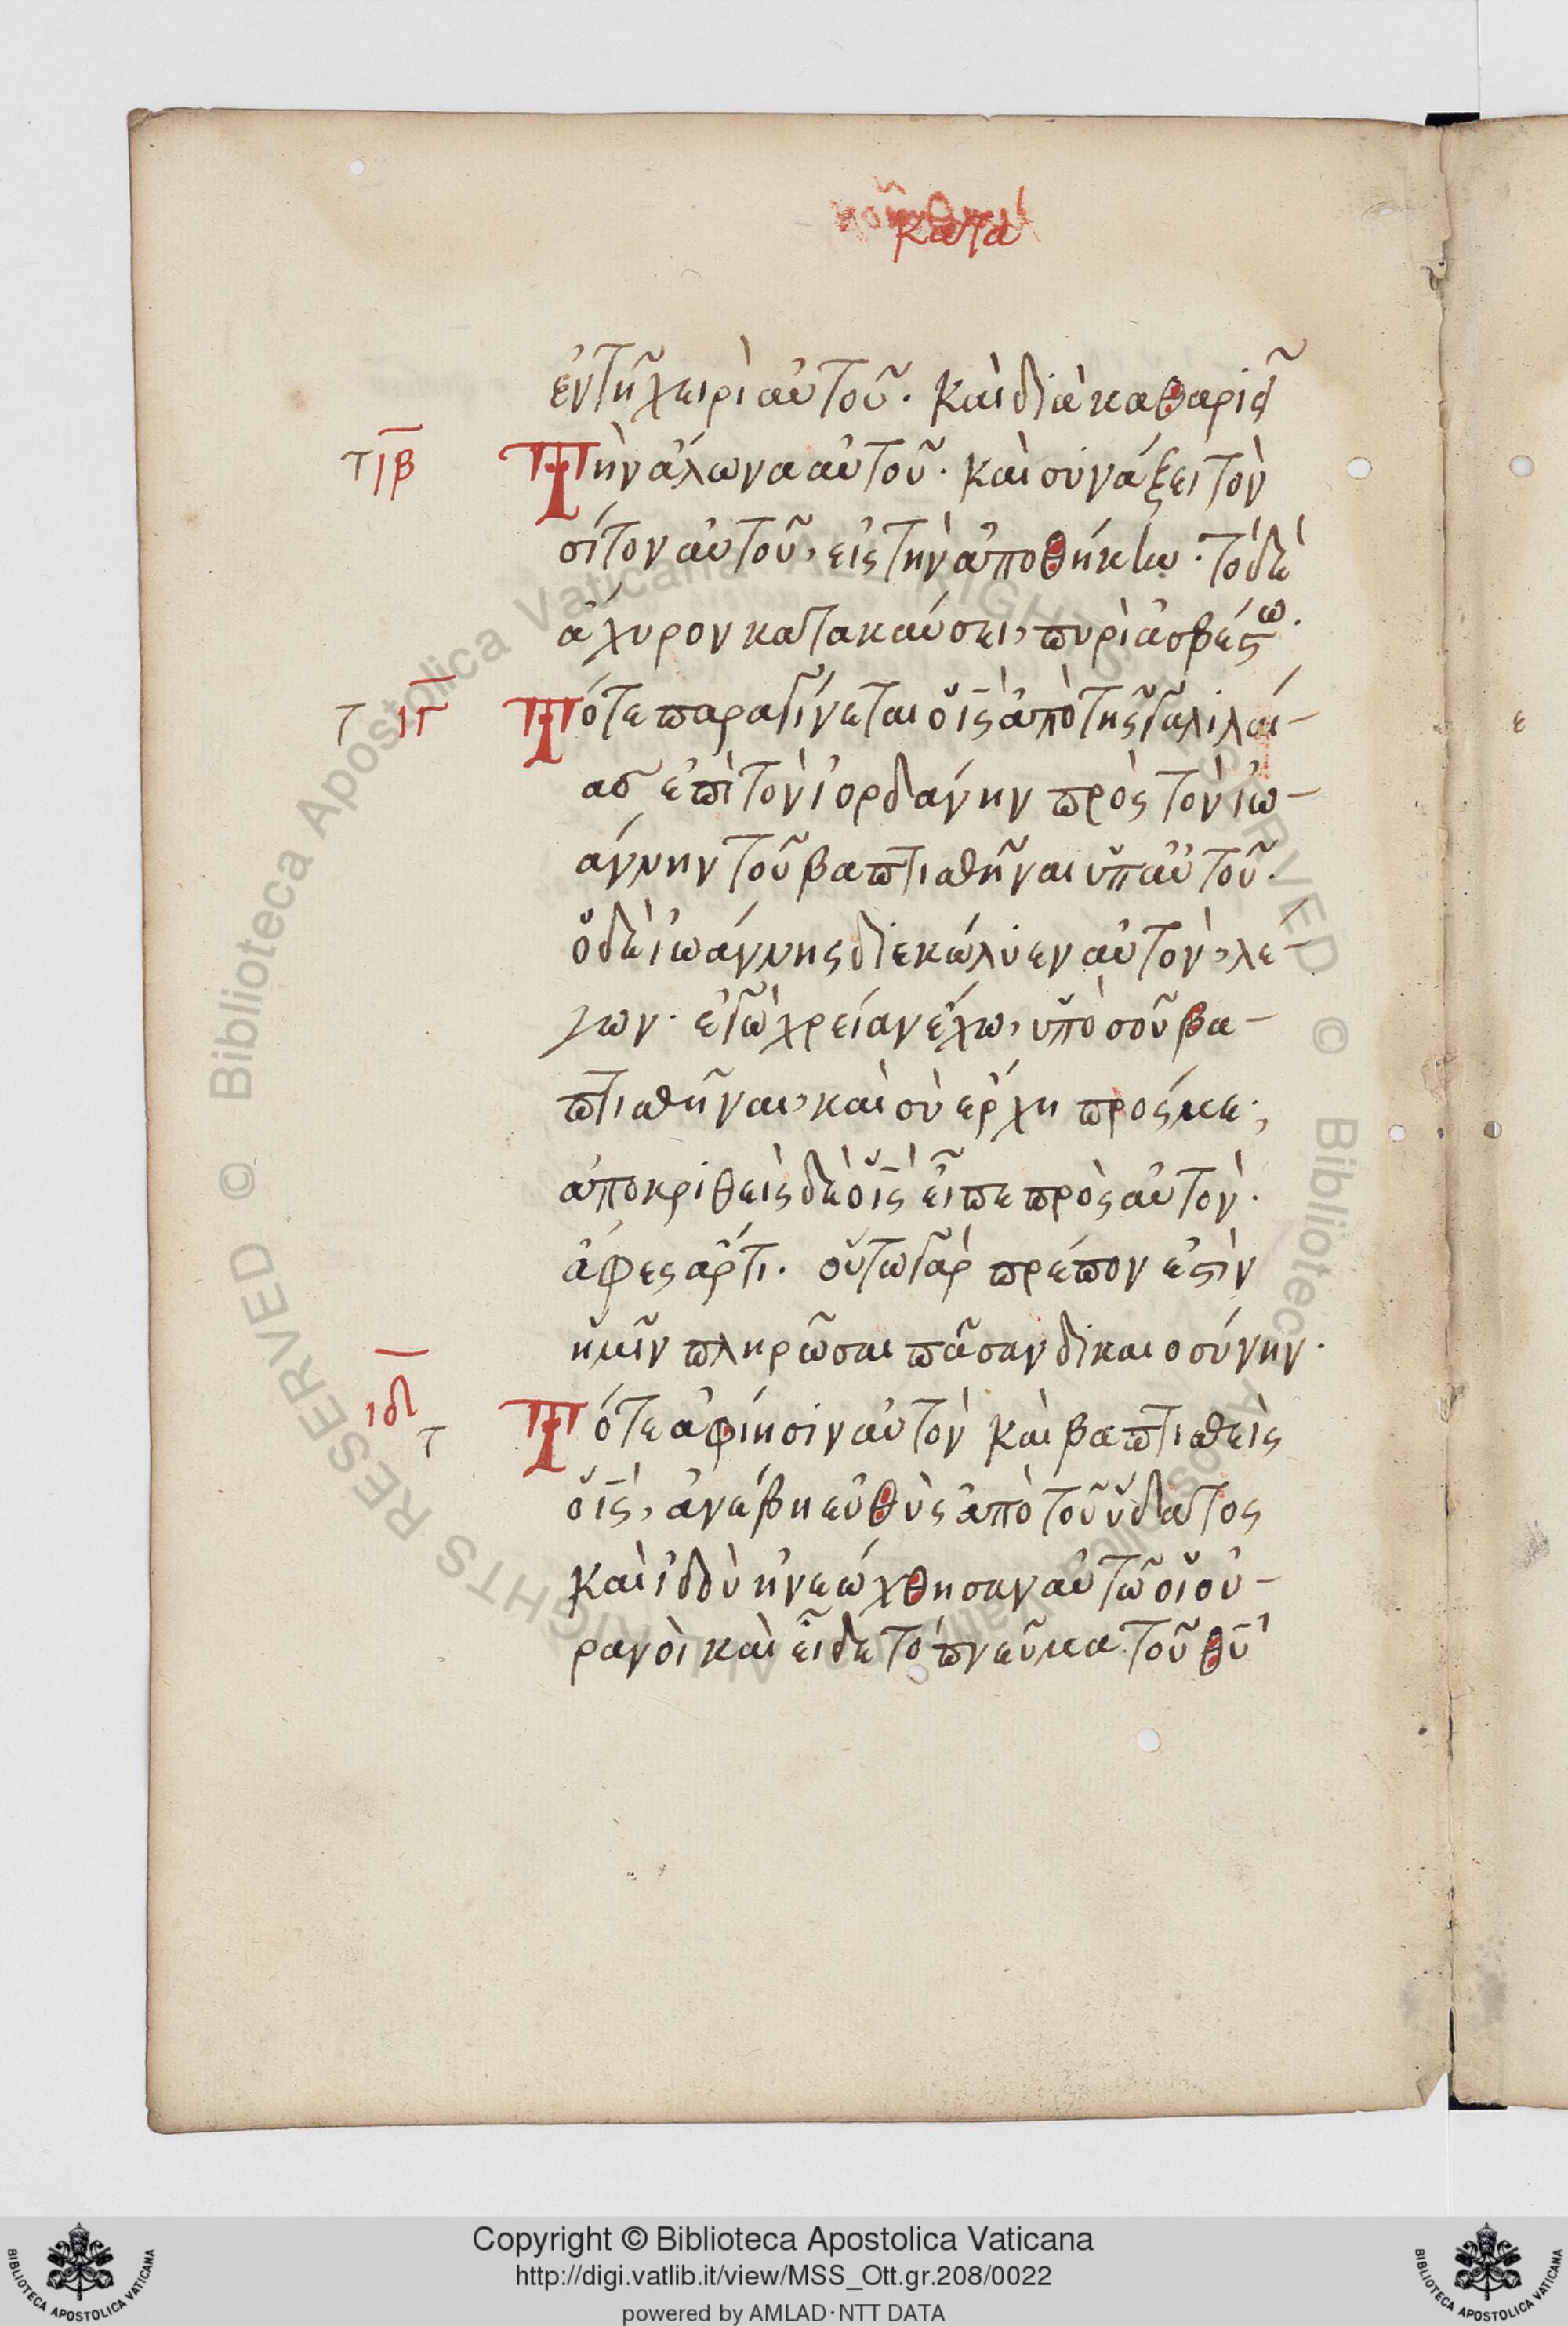 κατὰ
ἐν τῆ χειρὶ αὐτοῦ. καὶ διακαθαριεῖ
τ ιβ Τὴν ἅλωνα αὐτοῦ. καὶ συνάξει τὸν
σίτον αὐτοῦ, εἰς τὴν ἀποθήκην. τὸ δὲ
ἄχυρον κατακαύσει, πυρὶ ἀσβέστω.
τ ιγ Τότε παραγίνεται ὁ ις ἀπὸ τῆς γαλιλαί-
ας ἐπὶ τὸν ἰορδάνην πρὸς τὸν ἰω-
άννην τοῦ βαπτισθῆναι ὑπ αὐτοῦ.
ὁ δὲ ἰωάννης διεκώλυεν αὐτὸν, λέ-
γων. ἐγὼ χρείαν ἔχω, ὑπὸ σοῦ βα-
πτισθῆναι, καὶ σὺ ἔρχη πρός με;
ἀποκριθεὶς δὲ ὁ ις εἶπε πρὸς αὐτὸν.
ἄφες ἄρτι. οὕτω γὰρ πρέπον ἐστὶν
ἡμῖν πληρῶσαι πᾶσαν δικαιοσύνην.
ιδ τ Τότε ἀφίησιν αὐτὸν καὶ βαπτισθεὶς
ὁ ις, ἀνέβη εὐθὺς ἀπὸ τοῦ ὕδατος
καὶ ἰδοὺ ἠνεώχθησαν αὐτῶ οἱ οὐ-
ρανοὶ καὶ εἶδε τὸ πνεῦμα τοῦ θῦ
ε
© Biblioteca Apostolica Vaticana ALL RIGHTS RESERVED © Biblioteca Apostolica Vaticana ALL RIGHTS RESERVED
Copyright © Biblioteca Apostolica Vaticana
http://digi.vatlib.it/view/MSS_Ott.gr.208/0022
powered by AMLAD·NTT DATA
BIBLIOTECA APOSTOLICA VATICANA
BIBLIOTECA APOSTOLICA VATICANA